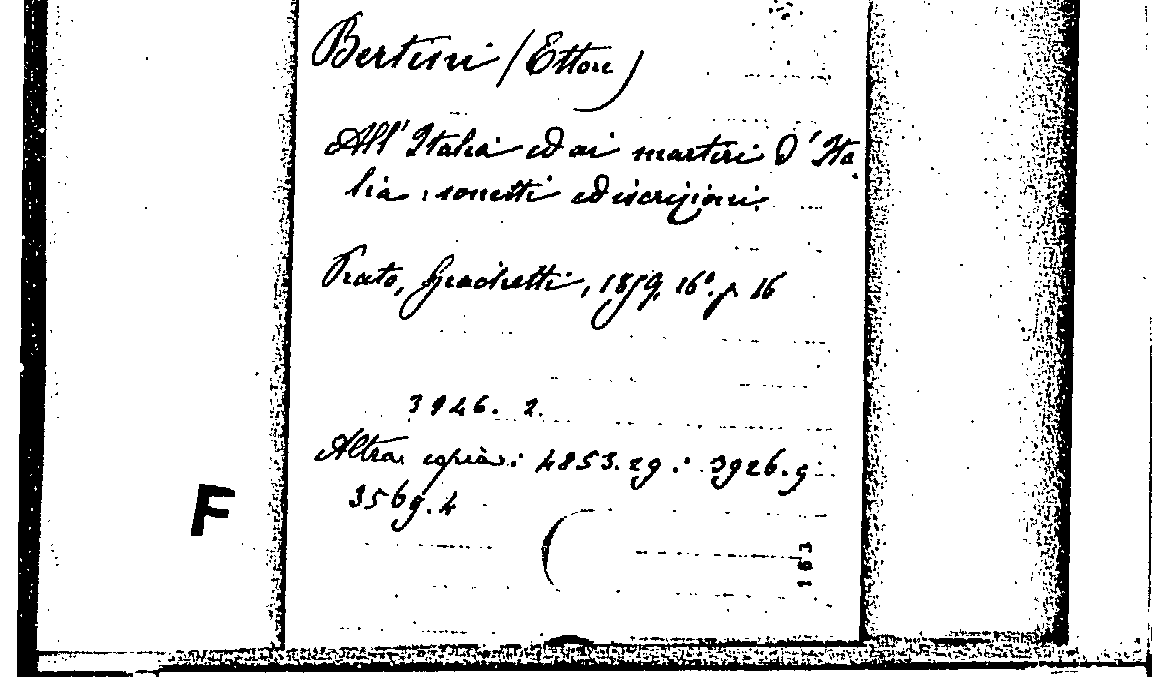 Bertini (Ettore)
All' Italia ed ai martiri d' Ita
lia: sonetti ed iscrizioni.
Prato, Giachetti, 1859, 16°. p. 16
3926. 2.
Altra copia: 4853.29: 3926.9
3569.4
F
163